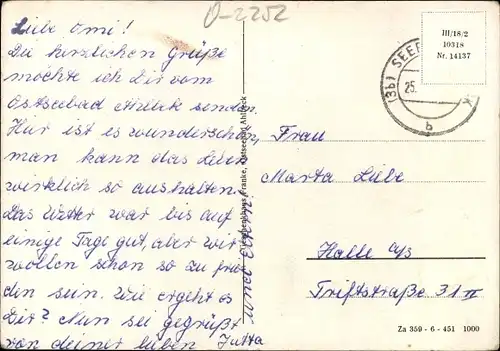 O-2252
Liebe Omi!
Die herzlichen Grüße
möchte ich Dir vom
Ostseebad Ahlbeck senden.
Hier ist es wunderschön,
man kann das Leben
wirklich so aushalten.
Das Wetter war bis auf
einige Tage gut, aber wir
wollen schon so zufrie
den sein. Wie ergeht es
Dir? Nun sei gegrüßt
von deiner lieben Jutta
und
Franke, Ostseebad Ahlbeck
III/18/2
10318
Nr. 14137
(3b) SEEB
25.
b
Frau
Marta Liebe
Halle a/s
Triftstraße 31 II
Za 359 - 6 - 451 1000